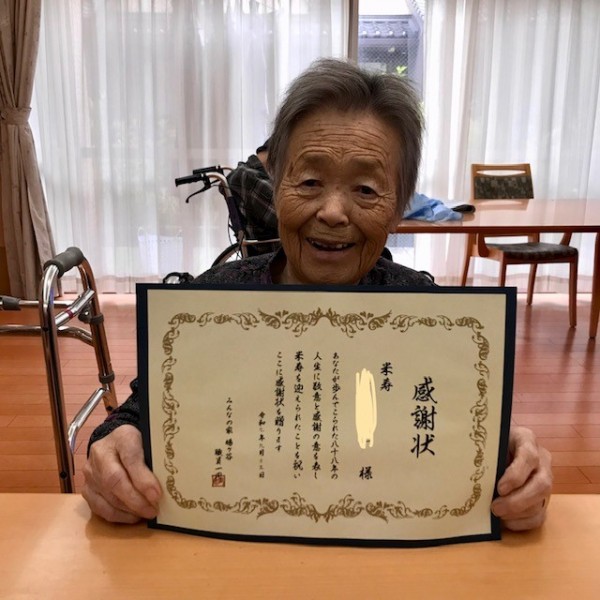 感謝状
米寿
様
あなたが歩んでこられた八十八年の
人生に敬意と感謝の意を表し
米寿を迎えられたことを祝い
ここに感謝状を贈ります
みんなの家
職員一同